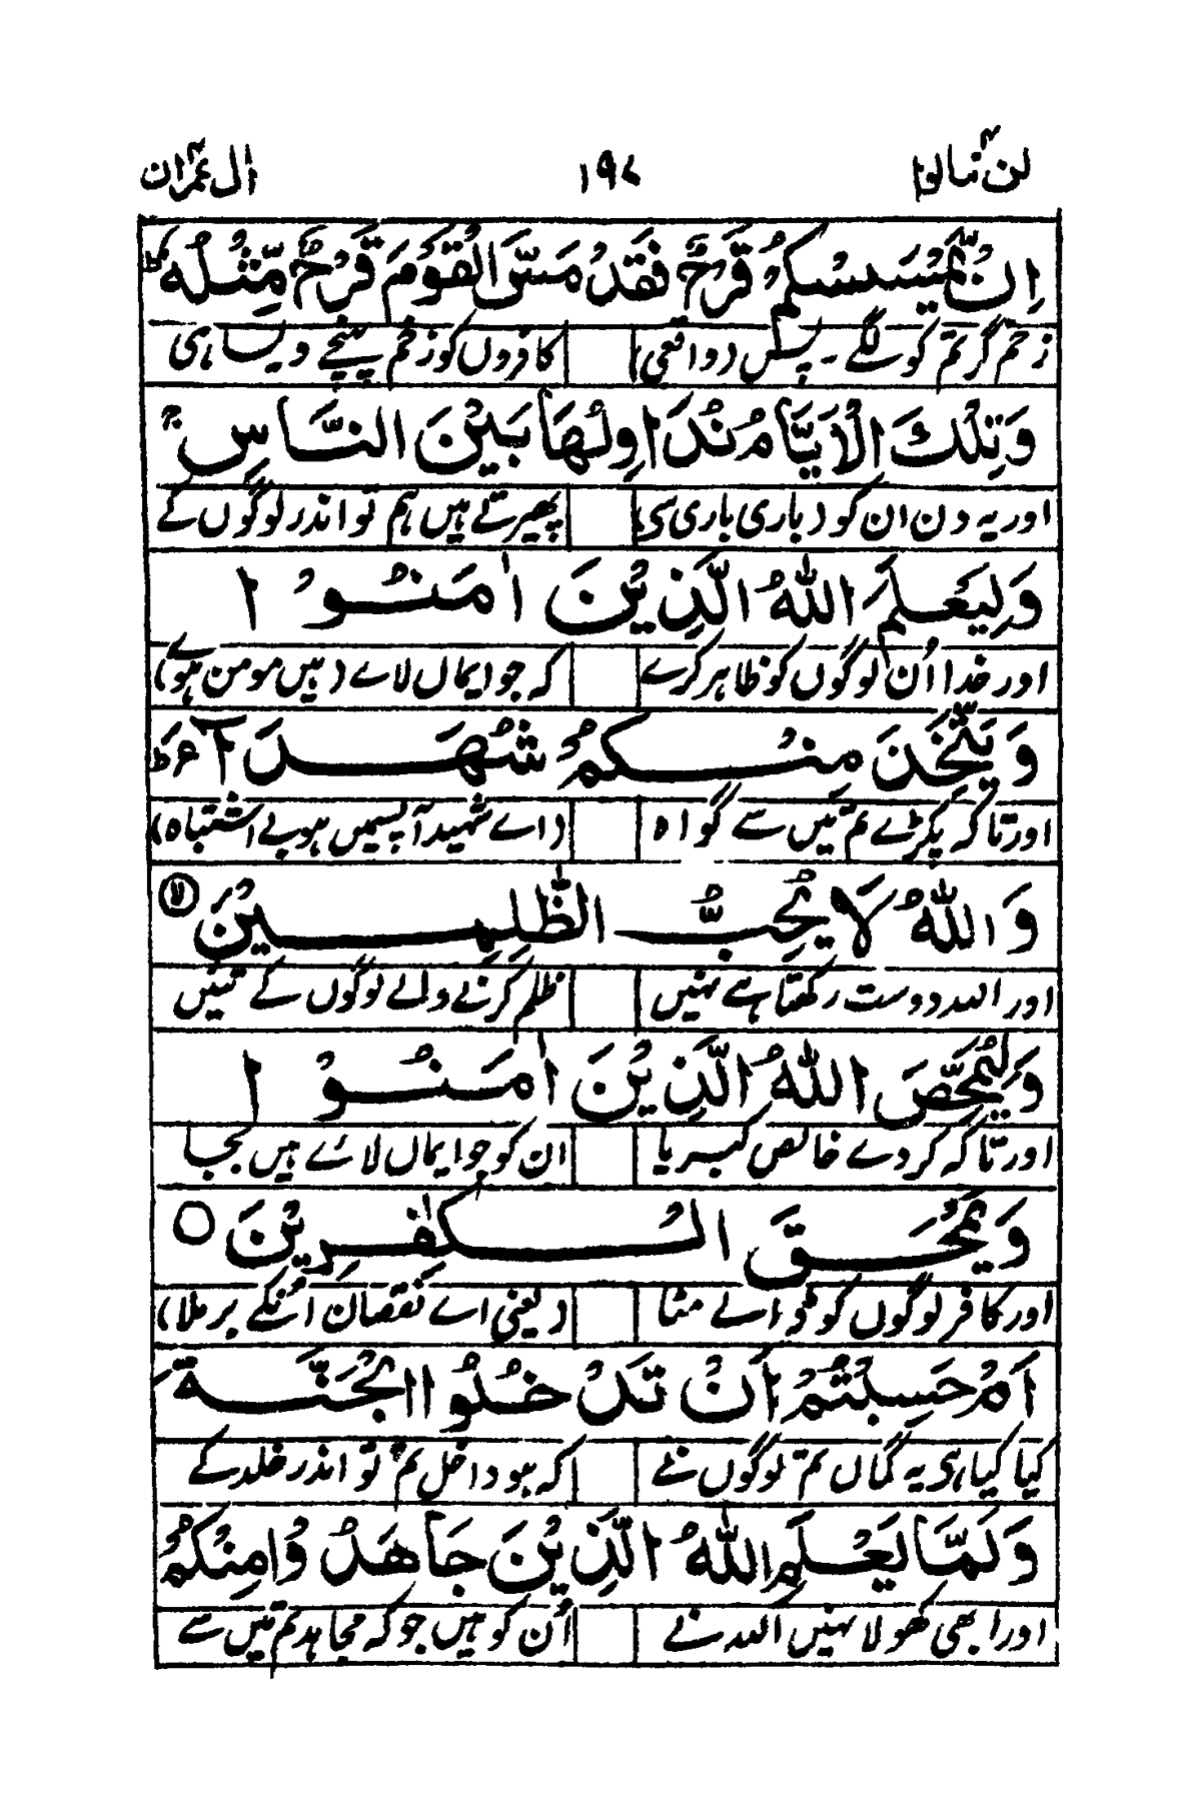 لن تنالوا ۴ ۱۹۷ اٰل عمران ۳
اِنْ یَّمْسَسْکُمْ قَرْحٌ فَقَدْ مَسَّ الْقَوْمَ قَرْحٌ مِّثْلُهٗ ؕ
زخم گر تم کو لگے ۔ پس (واقعی) کافروں کو زخم پہنچے ویسا ہی
وَتِلْكَ الْاَیَّامُ نُدَاوِلُهَا بَیْنَ النَّاسِ ۚ
اور یہ دن ان کو (باری باری سی) پھیرتے ہیں ہم تو اندر لوگوں کے
وَلِیَعْلَمَ اللّٰهُ الَّذِیْنَ اٰمَنُوْا
اور خدا اُن لوگوں کو ظاہر کرے کہ جو ایماں لاے (ہیں مومن ہوے)
وَیَتَّخِذَ مِنْکُمْ شُهَدَآءَ ؕ
اور تاکہ پکڑے تم میں سے گواہ (اے شہید آپسمیں ہو بے اشتباہ)
وَاللّٰهُ لَا یُحِبُّ الظّٰلِمِیْنَ ۙ
اور اللہ دوست رکھتا ہے نہیں ظلم کرنے والے لوگوں کے تئیں
وَلِیُمَحِّصَ اللّٰهُ الَّذِیْنَ اٰمَنُوْا
اور تاکہ کر دے خالص کبریا ان کو جو ایماں لائے ہیں بجا
وَیَمْحَقَ الْکٰفِرِیْنَ ○
اور کافر لوگوں کو ڈالے مٹا (یعنی اے نقصان اُنکے برملا)
اَمْ حَسِبْتُمْ اَنْ تَدْخُلُوا الْجَنَّةَ
کیا کیا ہی یہ گماں تم لوگوں نے کہ ہو داخل تم تو اندر خلد کے
وَلَمَّا یَعْلَمِ اللّٰهُ الَّذِیْنَ جَاهَدُوْا مِنْکُمْ
اور ابھی کھولا نہیں اللہ نے اُن کو ہیں جو کہ مجاہد تم میں سے